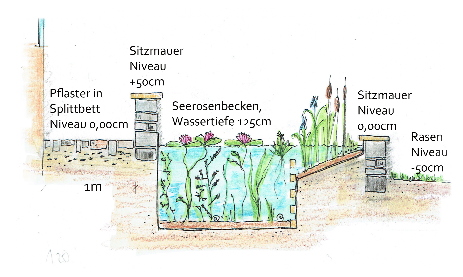 Sitzmauer
Niveau
+50cm
Pflaster in
Splittbett
Niveau 0,00cm
Seerosenbecken,
Wassertiefe 125cm
Sitzmauer
Niveau
0,00cm
Rasen
Niveau
-50cm
1m